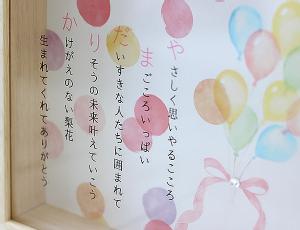 やさしく思いやるこころ
まごころいっぱい
だいすきな人たちに囲まれて
りそうの未来叶えていこう
かけがえのない梨花
生まれてくれてありがとう